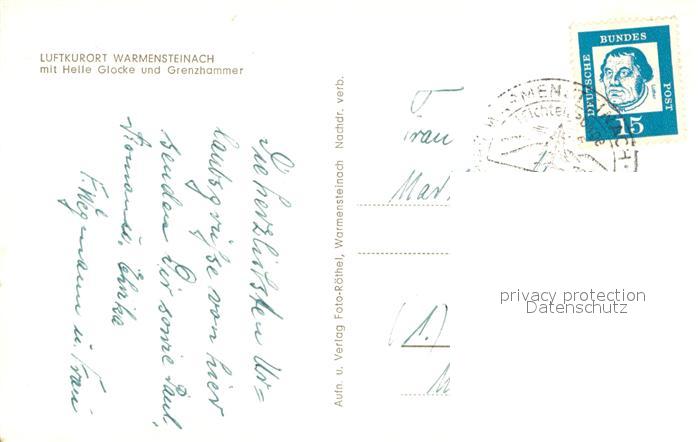 LUFTKURORT WARMENSTEINACH
mit Helle Glocke und Grenzhammer
Die herzlichsten Ur=
laubsgrüße von hier
senden Dir sowie Paul,
u. Erika
F. Wegmann u. Frau
Aufn. u. Verlag Foto-Röthel, Warmensteinach Nachdr. verb.
DEUTSCHE
BUNDES
POST
15
Frau
Mar
(1)
privacy protection
Datenschutz